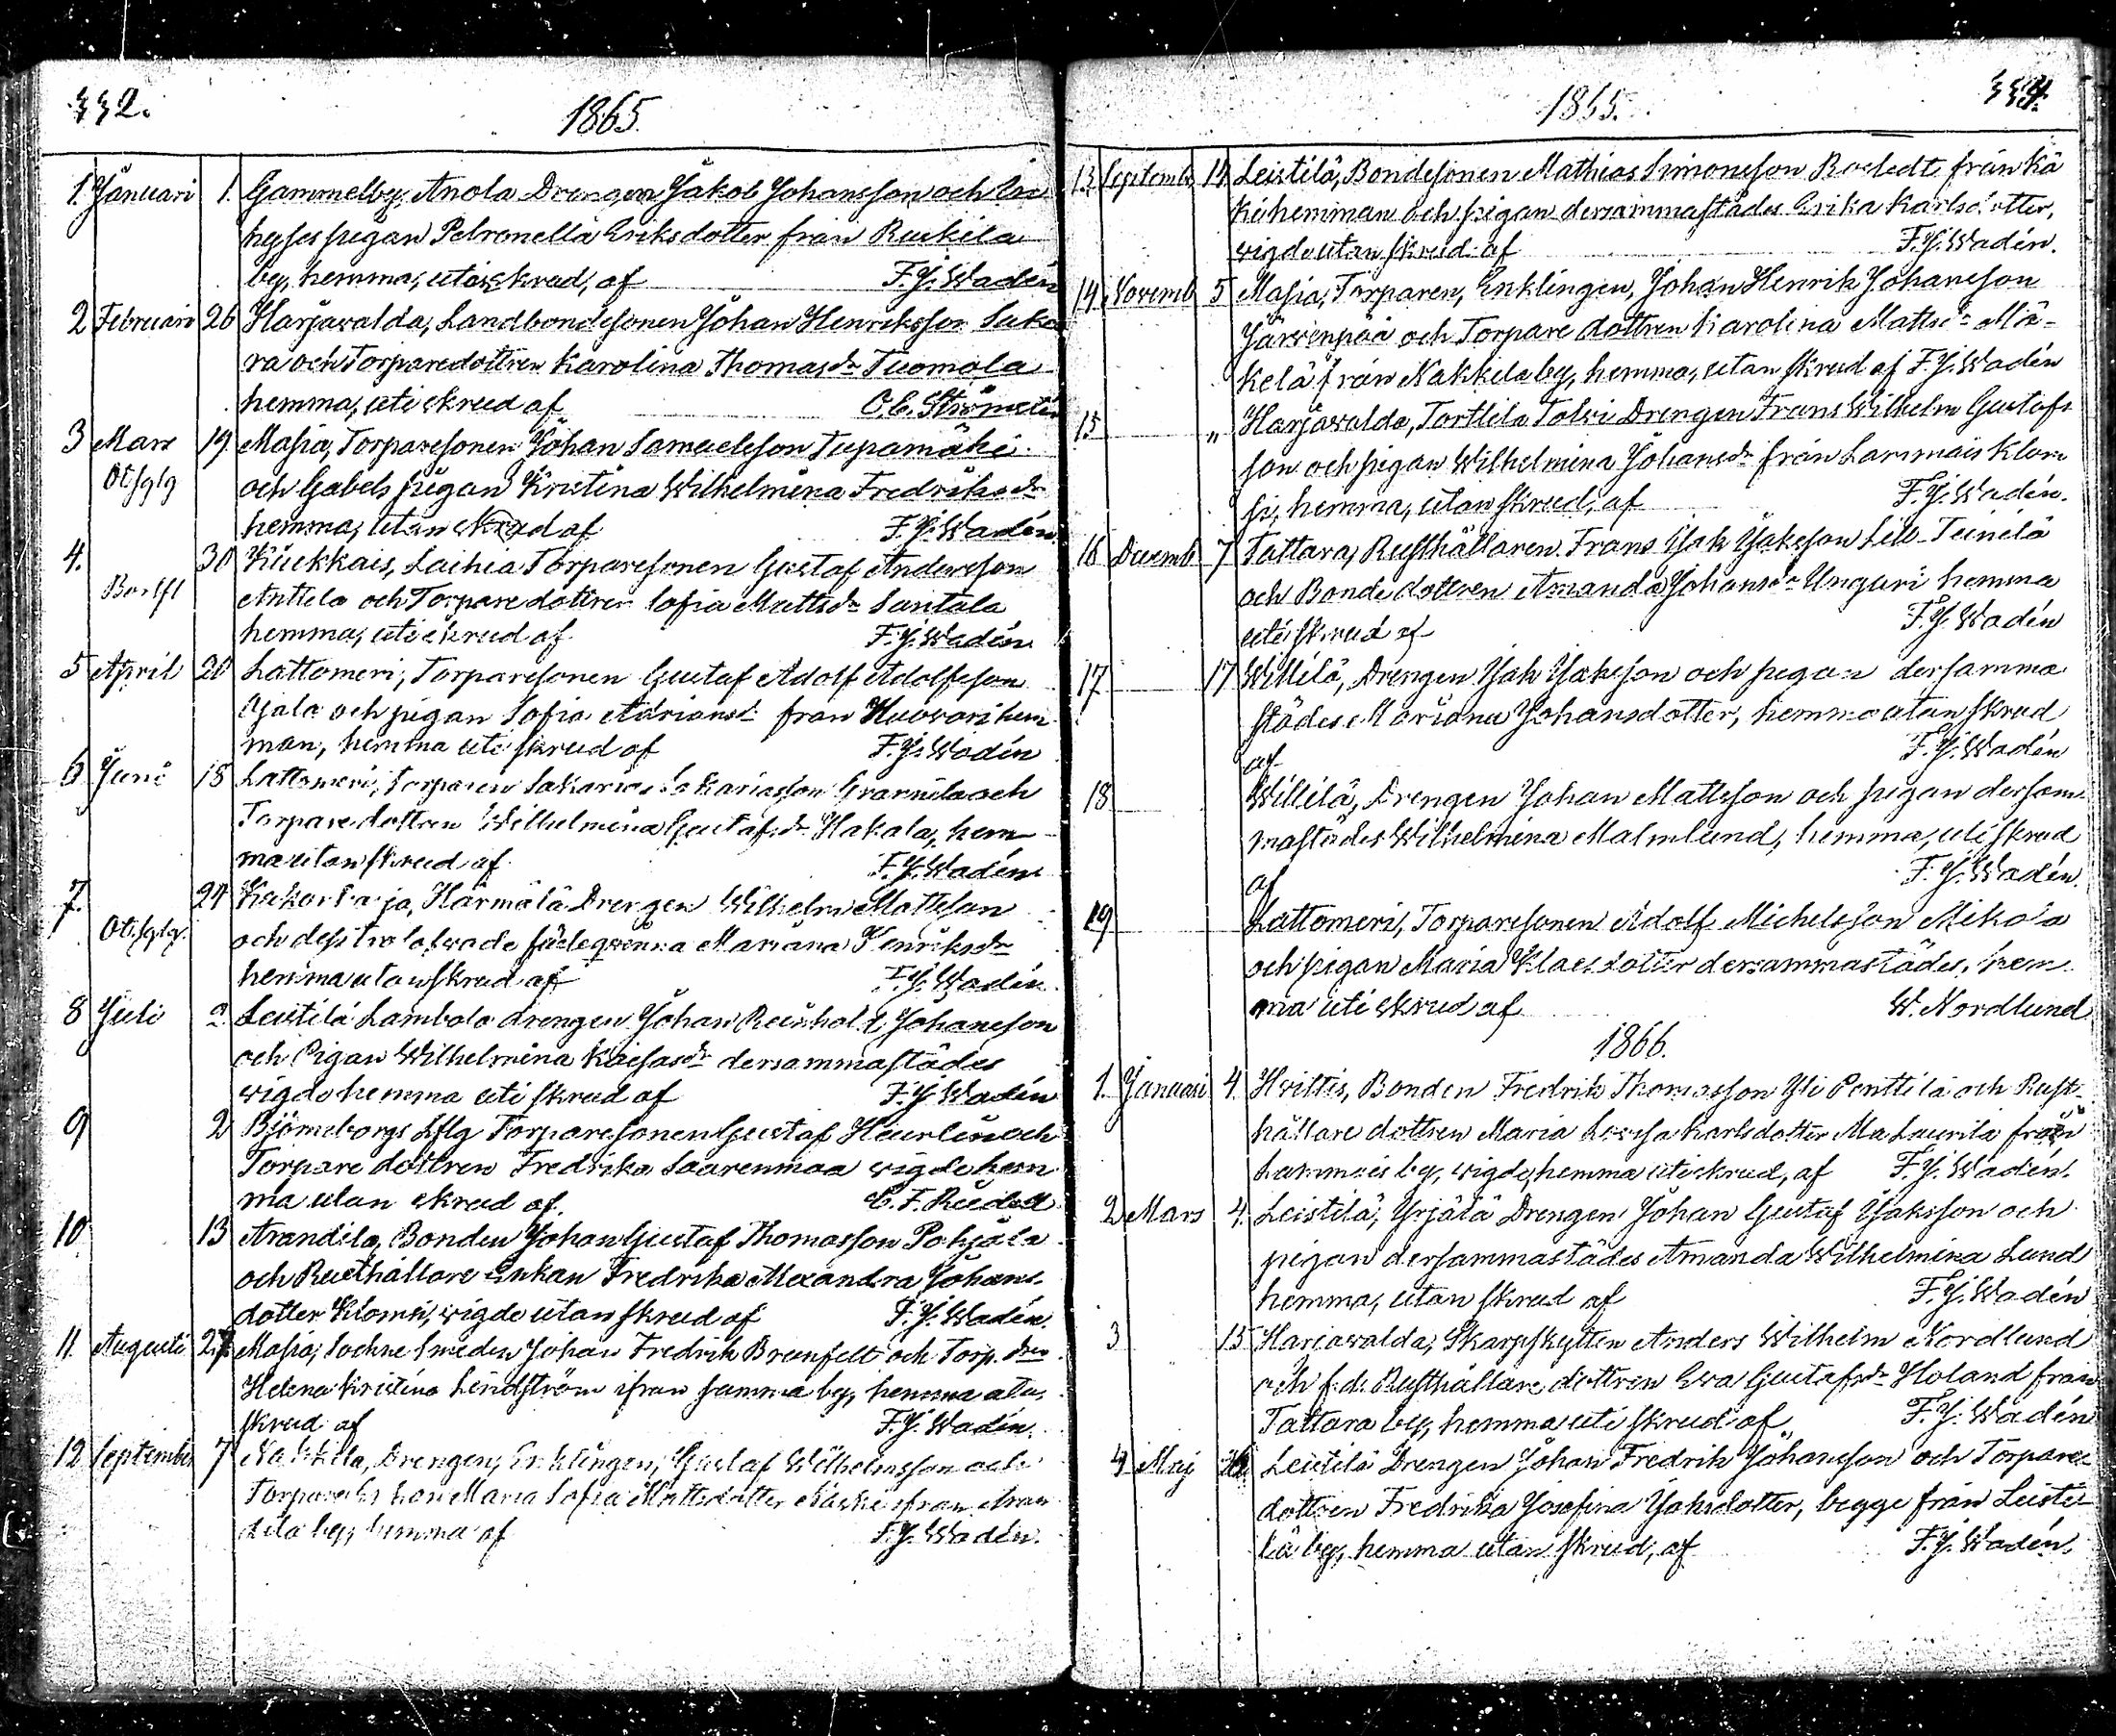 332.
1865.
1. Januari 1. Gammelby, Anola Drengen Jakob Johansson och In
hyses pigan Petronella Eriksdotter från Ruskila
by, hemma, uti skrud, af F. J. Wadén
2 Februari 26 Harjawalda, Landbondesonen Johan Henriksson Saka
ra och Torparedottren Karolina Thomasdr Tuomola
hemma, uti skrud af C. C. Strömsten
3 Mars 19 Masia, Torparesonen Johan Samuelsson Tupamäki
och Gabels pigan Kristina Wilhelmina Fredriksdr
hemma, utan skrud af F. J. Wadén
4. 30 Kiukkais, Laihia Torparesonen Gustaf Andersson
Anttila och Torpare dottren Sofia Mattsdr Santala
hemma, uti skrud af F. J. Wadén
5 April 20 Lattomeri, Torparesonen Gustaf Adolf Adolfsson
Ojala och pigan Sofia Adriansdr från Huovari hem
man, hemma uti skrud af F. J. Wadén
6 Juni 18 Lattomeri, Torparen Sakarias Sakariasson och
Torpare dottren Wilhelmina Gustafsdr Hakala, hem
ma utan skrud af F. J. Wadén
7. 24 Härmälä Drengen Wilhelm Mattsson
och Mariana Henriksdr
hemma utan skrud af F. J. Wadén
8 Juli 2 Leistilä Lambola drengen Johan Reinhold Johansson
och Pigan Wilhelmina Kaisasdr dersammastädes
vigde hemma uti skrud af F. J. Wadén
9 2 Björneborgs Lflg Torparesonen Gustaf Heurlin och
Torpare dottren Fredrika Saarenmaa vigde hem
ma utan skrud af
10 13 Arandila, Bonden Johan Gustaf Thomasson Pohjala
och Rusthållare Enkan Fredrika Alexandra Johans
dotter Klomsi, vigde utan skrud af F. J. Wadén.
11. Augusti 27 Masia, Sockne Smeden Johan Fredrik Brunfelt och Torp. dtrn
Helena Kristina Lindström ifrån samma by, hemma utan
skrud af F. J. Wadén.
12 September 7 Nakkila, Drengen, Enklingen, Gustaf Wilhelmsson och
Torpare Enkan Maria Sofia Mattsdotter ifrån Aran
dila by, hemma af F. J. Wadén.
1865.
13 Septemb 14 Leistilä, Bondesonen Mathias Simonsson Rostedt från Kä
ki hemman och pigan dersammastädes Erika Karlsdotter,
vigde utan skrud af F. J. Wadén.
14 Novemb 5 Masia, Torparen, Enklingen, Johan Henrik Johansson
Järvenpää och Torpare dottren Karolina Mattsdr Mä-
kelä från Nakkila by, hemma, utan skrud af F. J. Wadén
15 " Harjawalda, Torttila Tolvi Drengen Frans Wilhelm Gustafs
son och pigan Wilhelmina Johansdr från Lammais Klom
si, hemma, utan skrud, af F. J. Wadén.
16 Decemb 7 Tattara, Rusthållaren Frans Isak Isaksson Lill-Teinilä
och Bonde dottren Amanda Johansdr Unguri hemma
uti skrud af F. J. Wadén
17 17 Willilä, Drengen Isak Isaksson och pigan dersamma
städes Mariana Johansdotter, hemma utan skrud
af F. J. Wadén
18 Willilä, Drengen Johan Mattsson och pigan dersam
mastädes Wilhelmina Malmlund, hemma, uti skrud
af F. J. Wadén.
19 Lattomeri, Torparesonen Adolf Michelsson Mikola
och pigan Maria Klaesdotter dersammastädes, hem
ma uti skrud af W. Nordlund
1866.
1. Januari 4. Hvittis, Bonden Fredrik Thomasson Yli Penttilä och Rust-
hållare dottren Maria Lovisa Karlsdotter Ala Laurila från
Lammais by, vigde, hemma uti skrud, af F. J. Wadén.
2 Mars 4. Leistilä, Yrjälä Drengen Johan Gustaf Isaksson och
pigan dersammastädes Amanda Wilhelmina Lund
hemma, utan skrud af F. J. Wadén
3 15 Harjawalda, Skarpskytten Anders Wilhelm Nordlund
och f.d. Rusthållare dottren Eva Gustafsdr Holand från
Tattara by, hemma uti skrud af F. J. Wadén
4 Maj Leistilä Drengen Johan Fredrik Johansson och Torpare-
dottren Fredrika Josefina Isaksdotter, begge från Leisti-
lä by, hemma utan skrud, af F. J. Wadén.